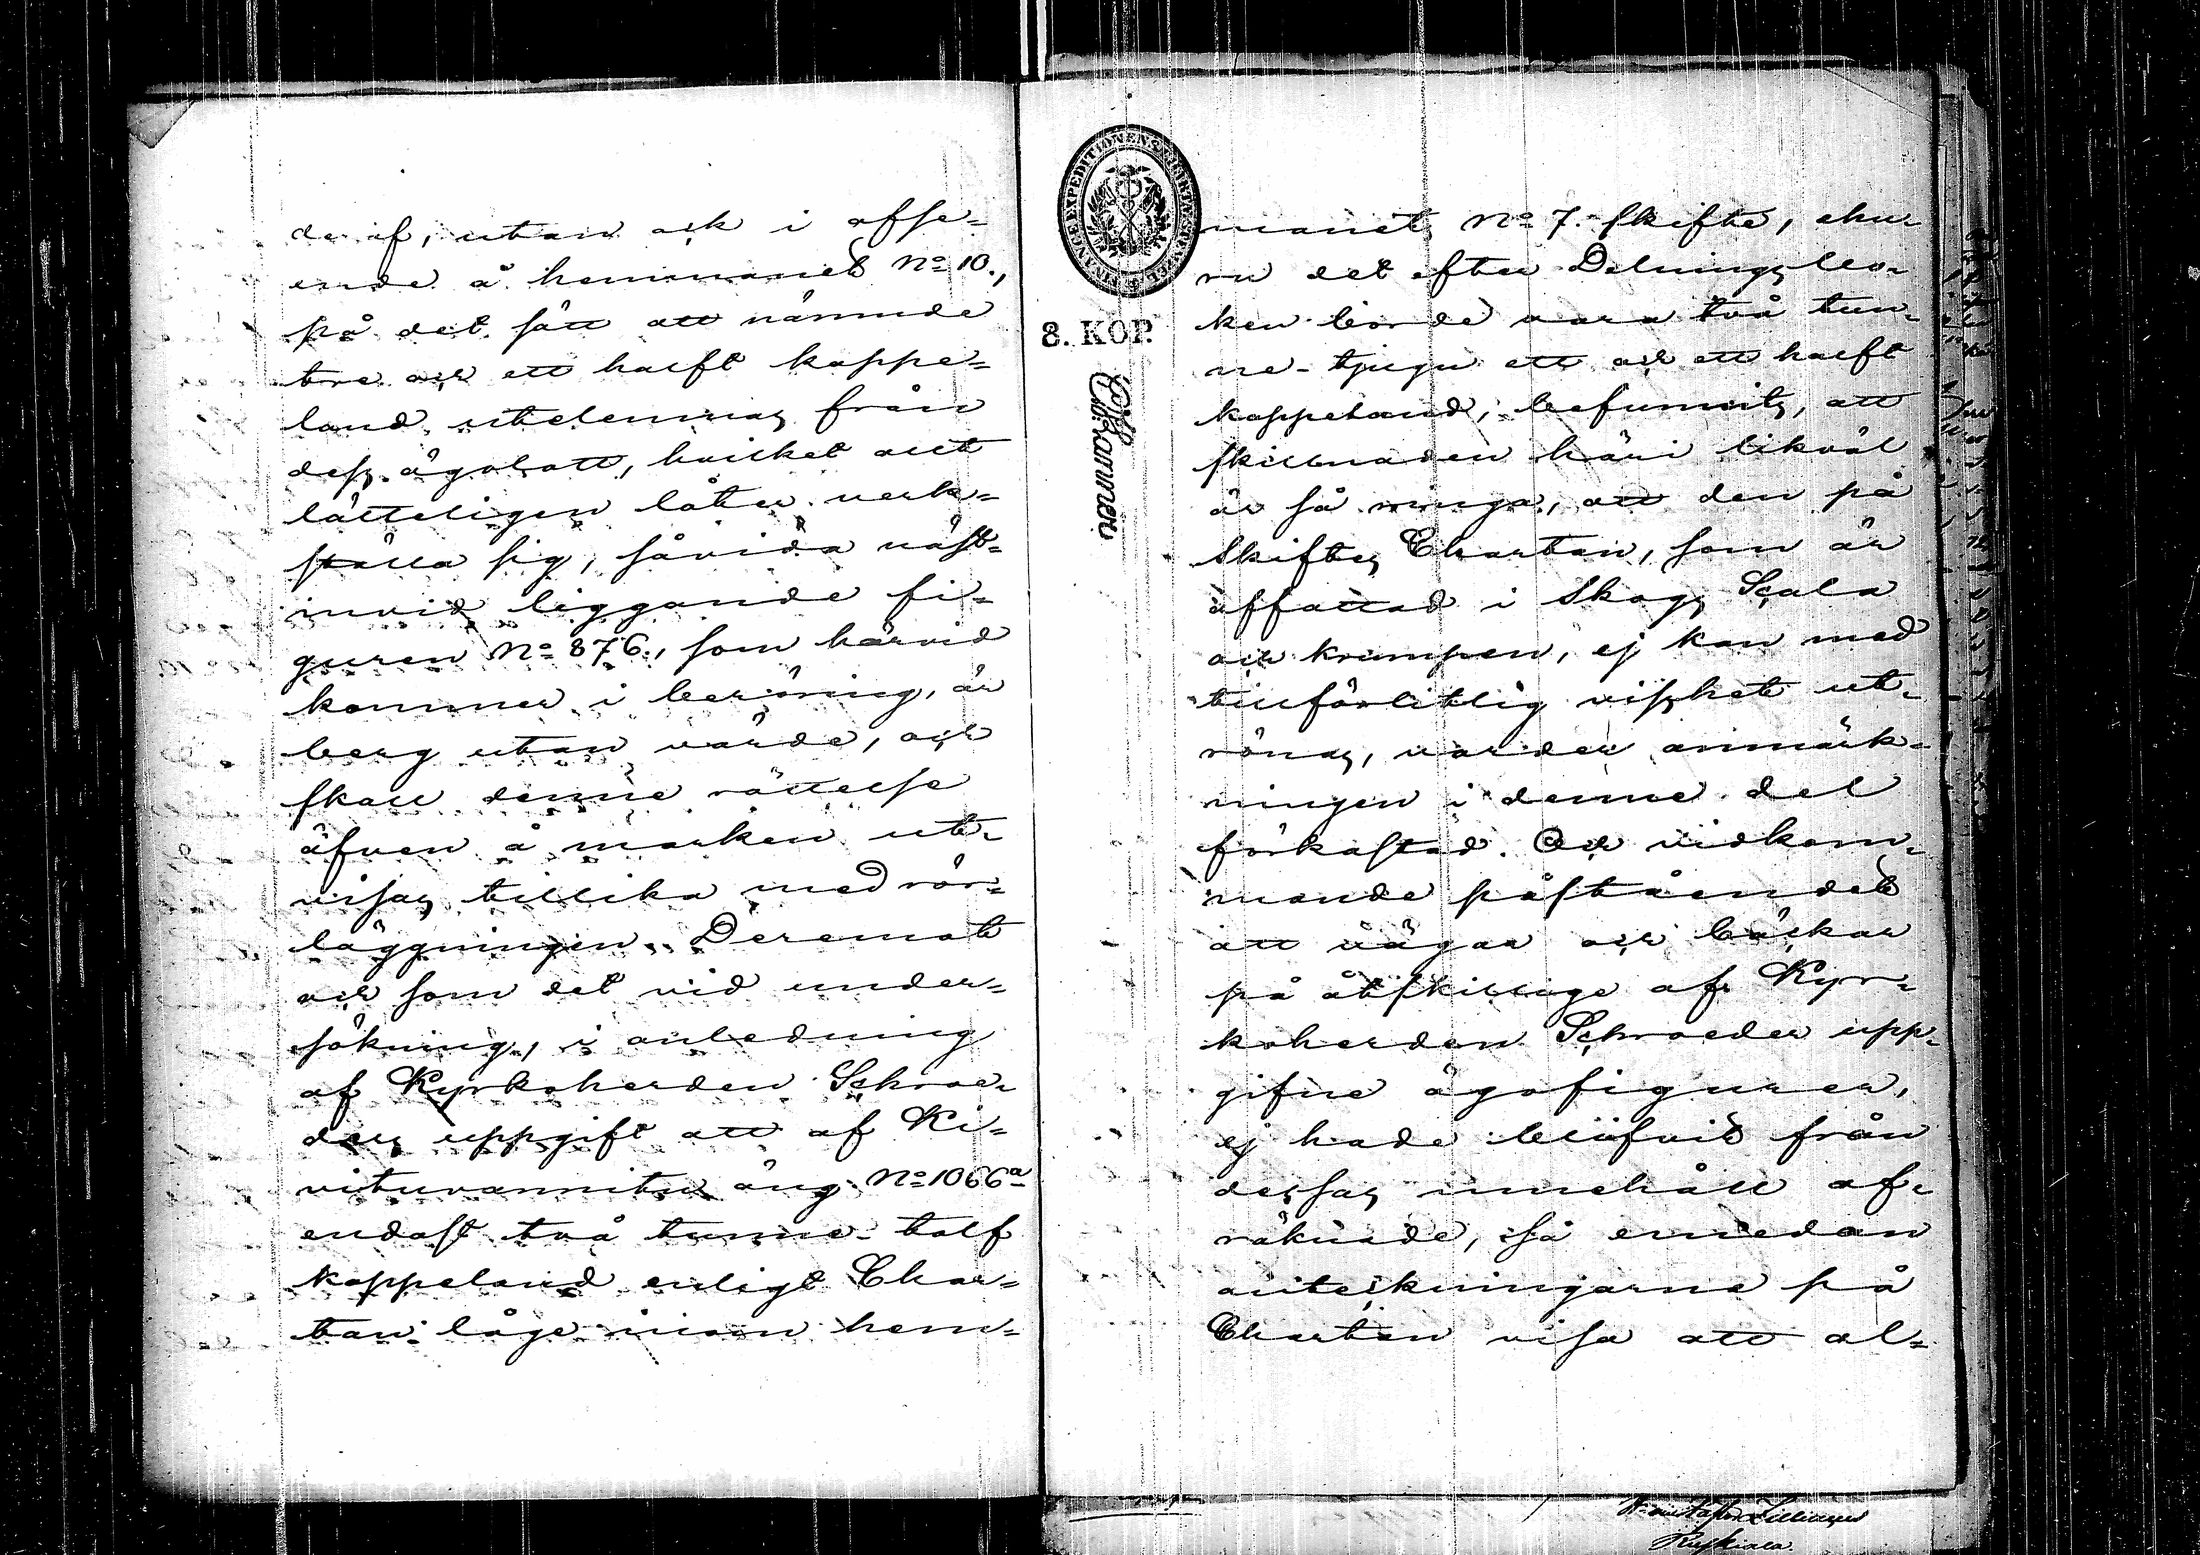 deraf, utan ock i afse-
ende å hemmanet No 10.,
på det sätt att nämnde
tre och ett halft kappe-
land utelemnas från
dess ägolott, hvilket allt
lätteligen låter verk-
ställa sig, såvida näst-
invid liggande fi-
guren No 876., som härvid
kommer i beröring, är
berg utan värde, och
skall denne rättelse
äfven å marken ut-
visas tillika med rör-
läggningen. Deremot
och som det vid under-
sökning, i anledning
af Kyrkoherden Schroe-
ders uppgift att af Ki-
vituvannitu äng No 1066a
endast två tunne- tolf
kappeland enligt Char-
tan låge inom hem-
FINANCEEXPEDITIONENS CHARTA SIGILL
8. KOP.
manets No 7. skifte, ehu-
ru det efter Delningsbo-
ken borde vara två tun-
ne- tjugu ett och ett halft
kappeland, befunnits, att
skillnaden häri likväl
är så ringa, att den på
Skiftes Chartan, som är
affattad i Skogs Scala
och krumpen, ej kan med
tillförlitlig visshet ut-
rönas, varder anmärk-
ningen i denne del
förkastad. Och vidkom-
mande påståendet
att vägar och bäckar
på åtskillige af Kyr-
koherden Schroeder upp-
gifne ägofigurer,
ej hade blifvit från
dessas innehåll af-
räknade, så emedan
anteckningarne på
Chartan visa att al-